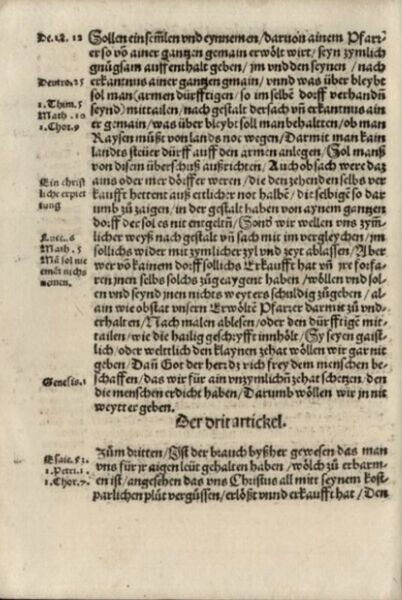 De. 18. 12
Sollen einsem̄len vnd eynnemen/daruon ainem Pfarr
er so võ ainer gantzen gemain erwölt wirt/seyn zymlich
gnůgsam auffenthalt geben/jm vnd den seynen/nach
Deutro. 25
erkantnus ainer gantzen gmain/vnnd was über bleybt
sol man (armen dürfftigen/so im selbẽ dorff verhandñ
1. Thim. 5
seynd) mittailen/nach gestalt der sach vñ erkantnus ain
Math. 10
er gemain/was über bleybt soll man behaltten/ob man
1. Chor. 9
Raysen můßt von lands not wegen/Darmit man kain
landts steüer dürff auff den armen anlegen/Sol manß
von disem überschuß außrichten/Auch ob sach were daz
Ein christ
ains oder mer dörffer weren/die den zehenden selbs ver
liche erpiet
kaufft hettent auß etlicher not halbẽ/die selbigẽ so dar
tung
umb zů zaigen/in der gestalt haben von aynem gantzen
dorff der sol es nit entgeltñ/Sonđ wir wellen vns zym̄
Luce. 6
licher weyß nach gestalt vñ sach mit im vergleychen/jm
Math. 5
sollichs wider mit zymlicher zyl vnd zeyt ablassen/Aber
Mã sol nie
wer võ kainem dorff sollichs Erkaufft hat vñ jre forfa-
emãt nichts
ren jnen selbs solchs zůgaygent haben/wöllen vnd sol-
nemen.
en vnd seynd jnen nichts weyters schuldig zůgeben/al-
ain wie obstat vnsern Erwöltẽ Pfarrer darmit zů vnd-
erhalten/Nach malen ablesen/oder den dürfftigẽ mit-
tailen/wie die hailig geschryfft innhölt/Sy seyen gaist-
lich/oder welttlich den klaynen zehat wöllen wir gar nit
geben/Dañ Got der herr dz vich frey dem menschen be-
Genesis. 1
schaffen/das wir für ain vnzymlichñ zehat schetzen/den
die menschen erdicht haben/Darumb wöllen wir jn nit
weytter geben.
Der drit artickel.
Esaie. 53.
Zům dritten/Ist der brauch byßher gewesen das man
1. Petri. 1.
vns für jr aigen leüt gehalten haben/wölch zů erbarm-
1. Chor. 7.
en ist/angesehen das vns Christus all mitt seynem kost
parlichen plůt vergüssen/erlößt vnnd erkaufft hat/Den